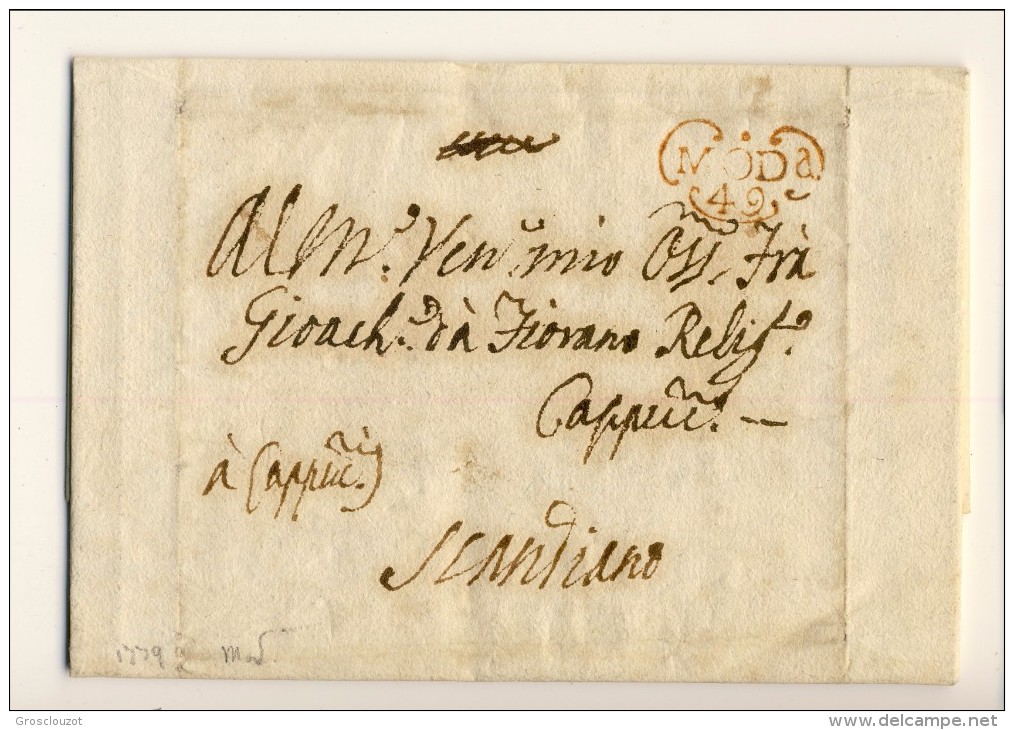 MODa.
49
Al M.º Ven.º mio Oss.mo Frà
Gioach.º dà Fiorano Relig.º
Cappuc.no —
à Cappuc.ni
Scandiano
1779 Mod.
Grosclouzot
www.delcampe.net